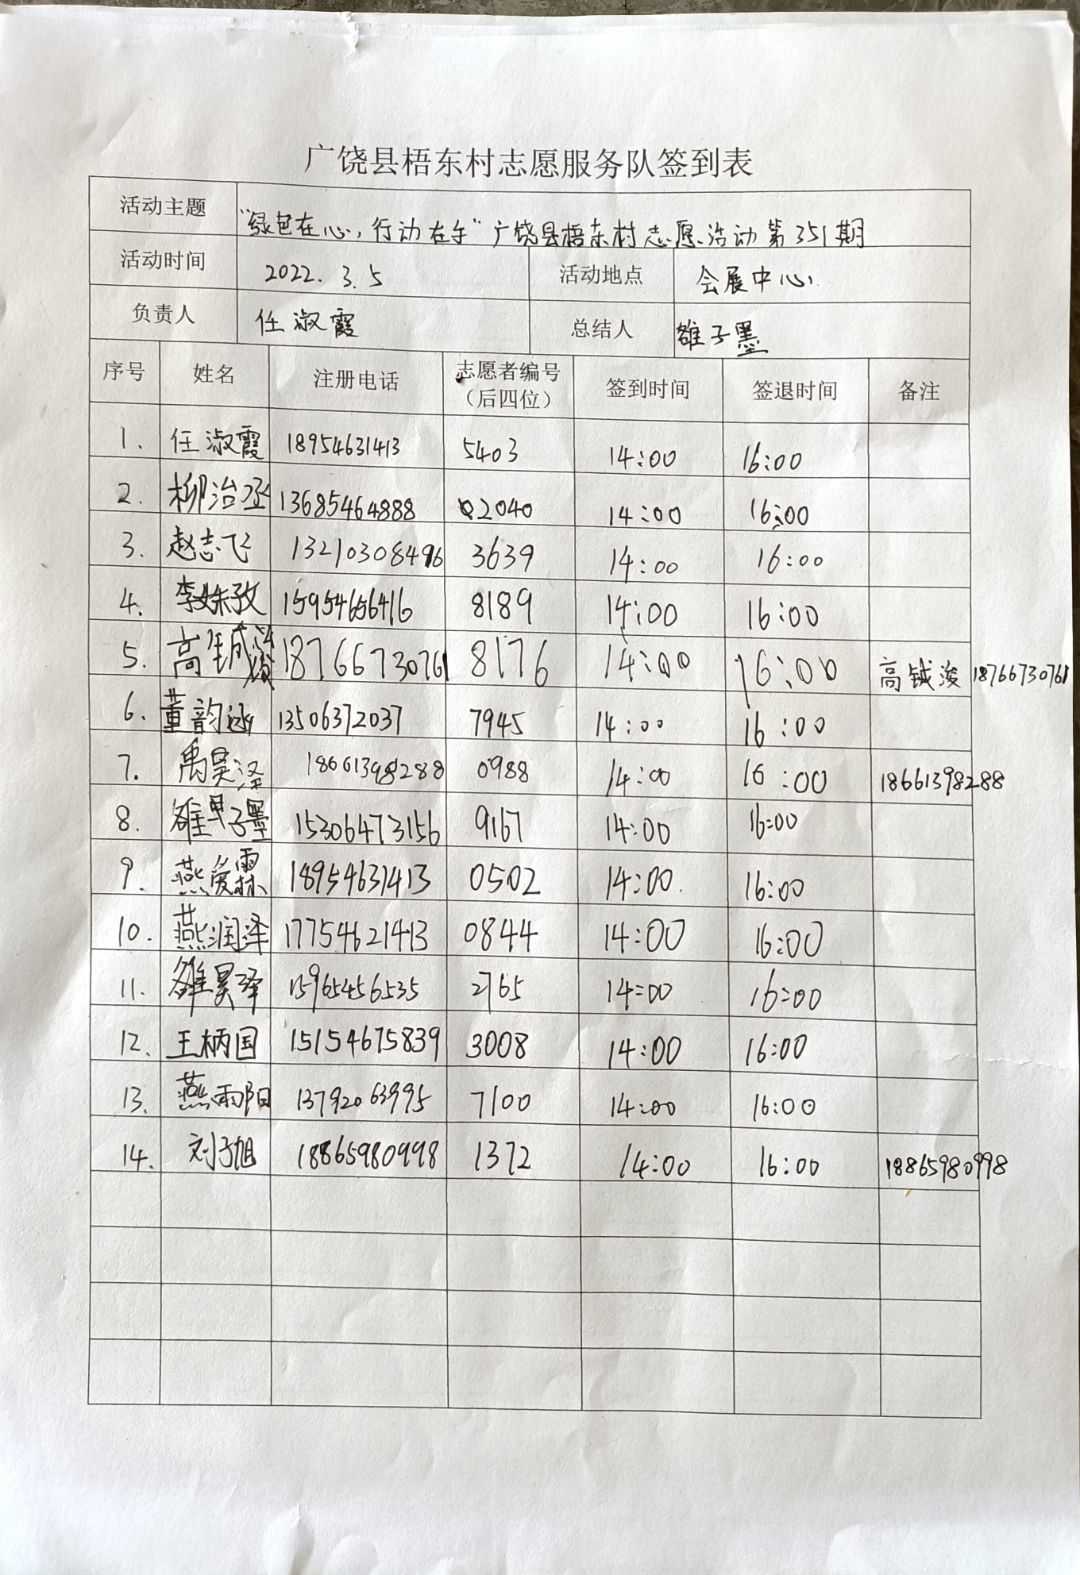 广饶县梧东村志愿服务队签到表
活动主题 "绿色在心,行动在手"广饶县梧东村志愿活动第351期
活动时间 2022.3.5 活动地点 会展中心
负责人 任淑霞 总结人 雒子墨
序号 姓名 注册电话 志愿者编号（后四位） 签到时间 签退时间 备注
1. 任淑霞 18954631413 5403 14:00 16:00
2. 柳治丞 13685464888 2040 14:00 16:00
3. 赵志飞 13210308496 3639 14:00 16:00
4. 李姝孜 15954656416 8189 14:00 16:00
5. 高铖浚 18766730761 8176 14:00 16:00 高铖浚 18766730761
6. 董韵涵 13506372037 7945 14:00 16:00
7. 禹昊泽 18661398288 0988 14:00 16:00 18661398288
8. 雒子墨 15306473156 9167 14:00 16:00
9. 燕爱霖 18954631413 0502 14:00 16:00
10. 燕润泽 17754621413 0844 14:00 16:00
11. 雒昊泽 15965456535 2765 14:00 16:00
12. 王柄国 15154675839 3008 14:00 16:00
13. 燕雨阳 13792063995 7100 14:00 16:00
14. 刘子旭 18865980998 1372 14:00 16:00 18865980998